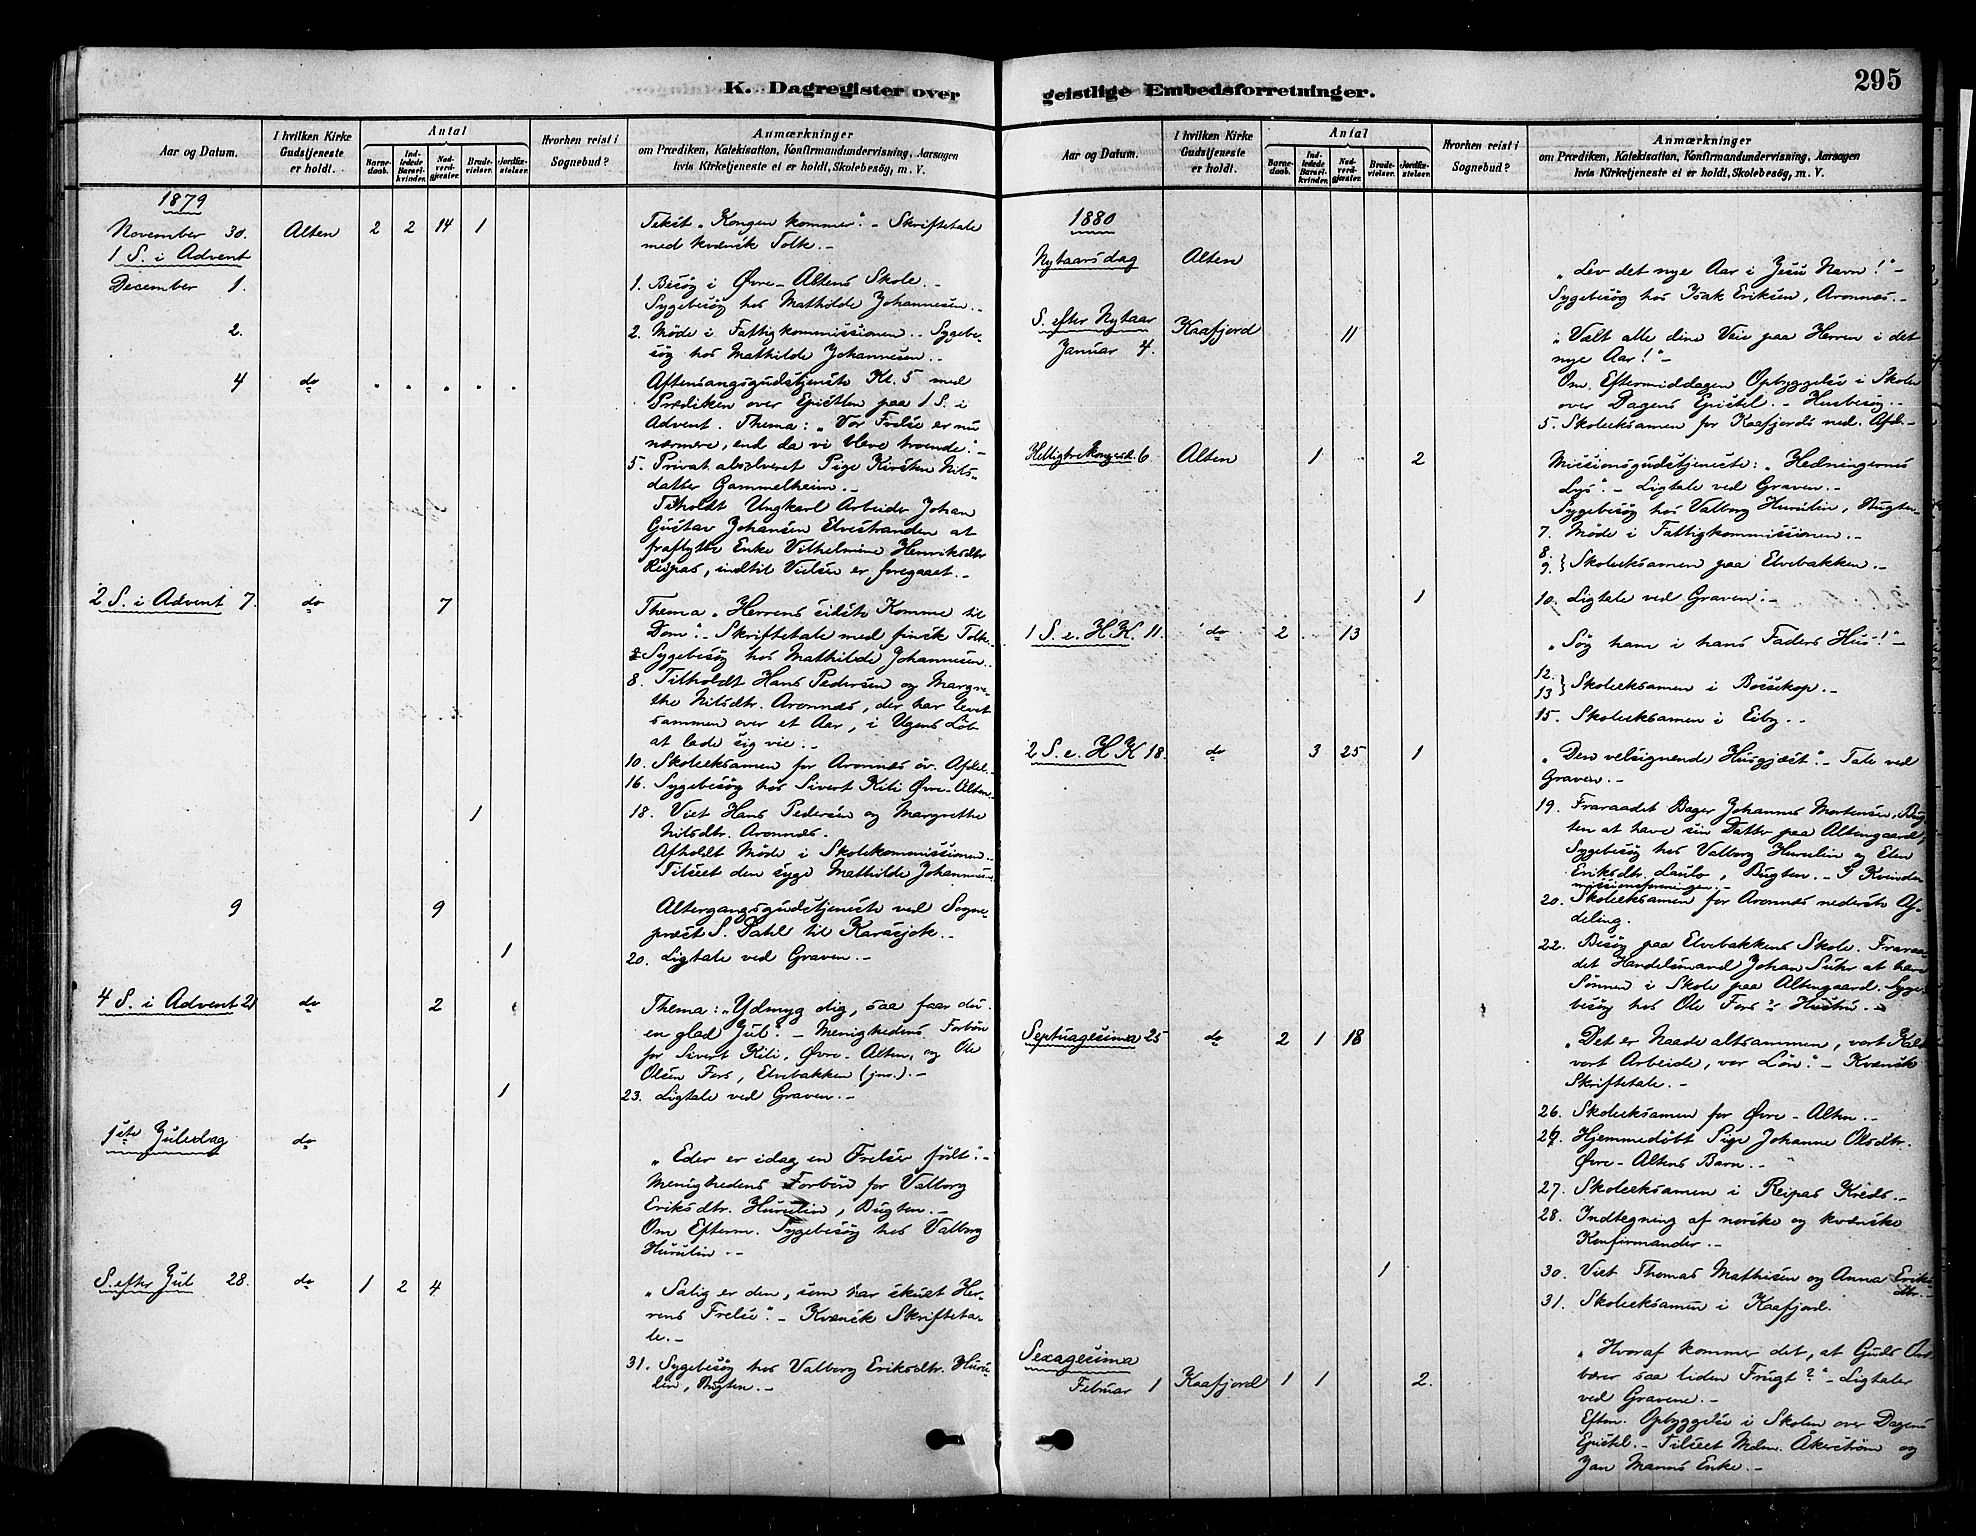 K. Dagregister over
Aar og Datum.
I hvilken Kirke Gudstjeneste er holdt.
Antal
Barnedaab.
Indledede Barselkvinder.
Nadverdgjæster.
Brudevielser.
Jordfæstelser.
Hvorhen reist i Sognebud?
Anmærkninger
om Prædiken, Katekisation, Konfirmandundervisning, Aarsagen
hvis Kirketjeneste ei er holdt, Skolebesøg, m. V.
1879
November 30. Alten 2 2 14 1 Tekst „Kongen kommer“. – Skriftetale
1 S. i Advent med kvænsk Tolk. –
December 1. 1. Besøg i Øvre-Altens Skole. –
Sygebesøg hos Mathilde Johannesen. –
2. 2. Møde i Fattigkommissionen. – Sygebe-
søg hos Mathilde Johannesen. –
4 do Aftensangsgudstjeneste Kl. 5 med
Prædiken over Epistlen paa 1 S. i
Advent. Thema: „Vor Frelse er nu
nærmere, end da vi bleve troende“. –
5. Privat absolveret Pige Kirsten Nils-
datter Gammelheim. –
Tilholdt Ungkarl Arbeider Johan
Gustav Johansen Elvestranden at
fraflytte Enke Vilhelmine Henriksdtr
Reipas, indtil Vielsen er foregaaet. –
2 S. i Advent 7. do 7 Thema „Herrens sidste Komme til
Dom“. – Skriftetale med finsk Tolk. –
Sygebesøg hos Mathilde Johannesen. –
8. Tilholdt Hans Pedersen og Margre-
the Nilsdtr. Aronnæs, der har levet
sammen over et Aar, i Ugens Løb
at lade sig vie. –
10. Skoleeksamen for Aronnæs øv. Afdel. –
16. Sygebesøg hos Sivert Kili Øvre-Alten. –
1 18. Viet Hans Pedersen og Margrethe
Nilsdtr. Aronnæs.
Afholdt Møde i Skolekommissionen. –
Tilseet den syge Mathilde Johannesen
9 9 Altergangsgudstjeneste ved Sogne-
præst S. Dahl til Karasjok. –
1 20. Ligtale ved Graven. –
4 S. i Advent 21 do 2 Thema: „Ydmyg dig, saa faar du
en glad Jul“. – Menighedens Forbøn
for Sivert Kili, Øvre-Alten, og Ole
Olsen Fors, Elvebakken (jun.). –
1 23. Ligtale ved Graven. –
1ste Juledag do
„Eder er idag en Frelser født“. –
Menighedens Forbøn for Valborg
Eriksdtr. Hurulin, Bugten. –
Om Efterm. Sygebesøg hos Valborg
Hurulin. –
S. efter Jul 28. do 1 2 4 „Salig er den, som har skuet Her-
rens Frelse“. – Kvænsk Skrifteta-
le. –
31. Sygebesøg hos Valborg Eriksdtr. Huru-
lin, Bugten. –
geistlige Embedsforretninger.
295
Aar og Datum.
I hvilken Kirke Gudstjeneste er holdt.
Antal
Barnedaab.
Indledede Barselkvinder.
Nadverdgjæster.
Brudevielser.
Jordfæstelser.
Hvorhen reist i Sognebud?
Anmærkninger
om Prædiken, Katekisation, Konfirmandundervisning, Aarsagen
hvis Kirketjeneste ei er holdt, Skolebesøg, m. V.
1880
Nytaarsdag Alten „Lev det nye Aar i Jesu Navn!“ –
Sygebesøg hos Isak Eriksen, Aronnæs. –
S. efter Nytaar
Januar 4. Kaafjord 11 „Vælt alle dine Veie paa Herren i det
nye Aar!“ –
Om Eftermiddagen Opbyggelse i Skolen
over Dagens Epistel. – Husbesøg. –
5. Skoleeksamen for Kaafjords ned. Afd. –
Helligtrekongersd. 6 Alten 1 2 Missionsgudstjeneste: „Hedningernes
Lys“. – Ligtale ved Graven. –
Sygebesøg hos Valborg Hurulin, Bugten.
7. Møde i Fattigkommissionen. –
8.
9. } Skoleeksamen paa Elvebakken. –
1 10. Ligtale ved Graven. –
1 S. e. H. K. 11. do 2 13
„Søg ham i hans Faders Hus!“ –
12.
13 } Skoleeksamen i Bossekop. –
15. Skoleeksamen i Eiby. –
2 S. e. H. K 18. do 3 25 1 „Den velsignende Husgjæst“. – Tale ved
Graven. –
19. Fraraadet Bager Johannes Mortensen, Bug-
ten at have sin Datter paa Altengaard,
Sygebesøg hos Valborg Hurulin og Elen
Eriksdtr. Laulo, Bugten. – I Kvinde-
missionsforeningen. –
20. Skoleeksamen for Aronnæs nederste Af-
deling.
22. Besøg paa Elvebakkens Skole. Fraraa-
det Handelsmand Johan Suhr at have
Sønnen i Skole paa Altengaard. Syge-
besøg hos Ole Fors's Hustru. –
Septuagesima 25 do 2 1 18 „Det er Naade altsammen, vort Kald
vort Arbeide, vor Løn“. – Kvænsk
Skriftetale. –
26. Skoleeksamen for Øvre-Alten. –
29. Hjemmedøbt Pige Johanne Olsdtr.
Øvre-Altens Barn. –
27. Skoleeksamen i Reipas Kreds. –
28. Indtegning af norske og kvænske
Konfirmander. –
1 30. Viet Thomas Mathisen og Anna Eriks-
dtr. –
31. Skoleeksamen i Kaafjord.
Sexagesima
Februar 1 Kaafjord 1 1 2. „Hvoraf kommer det, at Guds Ord
bærer saa liden Frugt?“ – Ligtaler
ved Gravene. –
Eftm. Opbyggelse i Skolen over Dagens
Epistel. – Tilseet Mdm. Åkerstrøm og
Jan Manns Enke. –